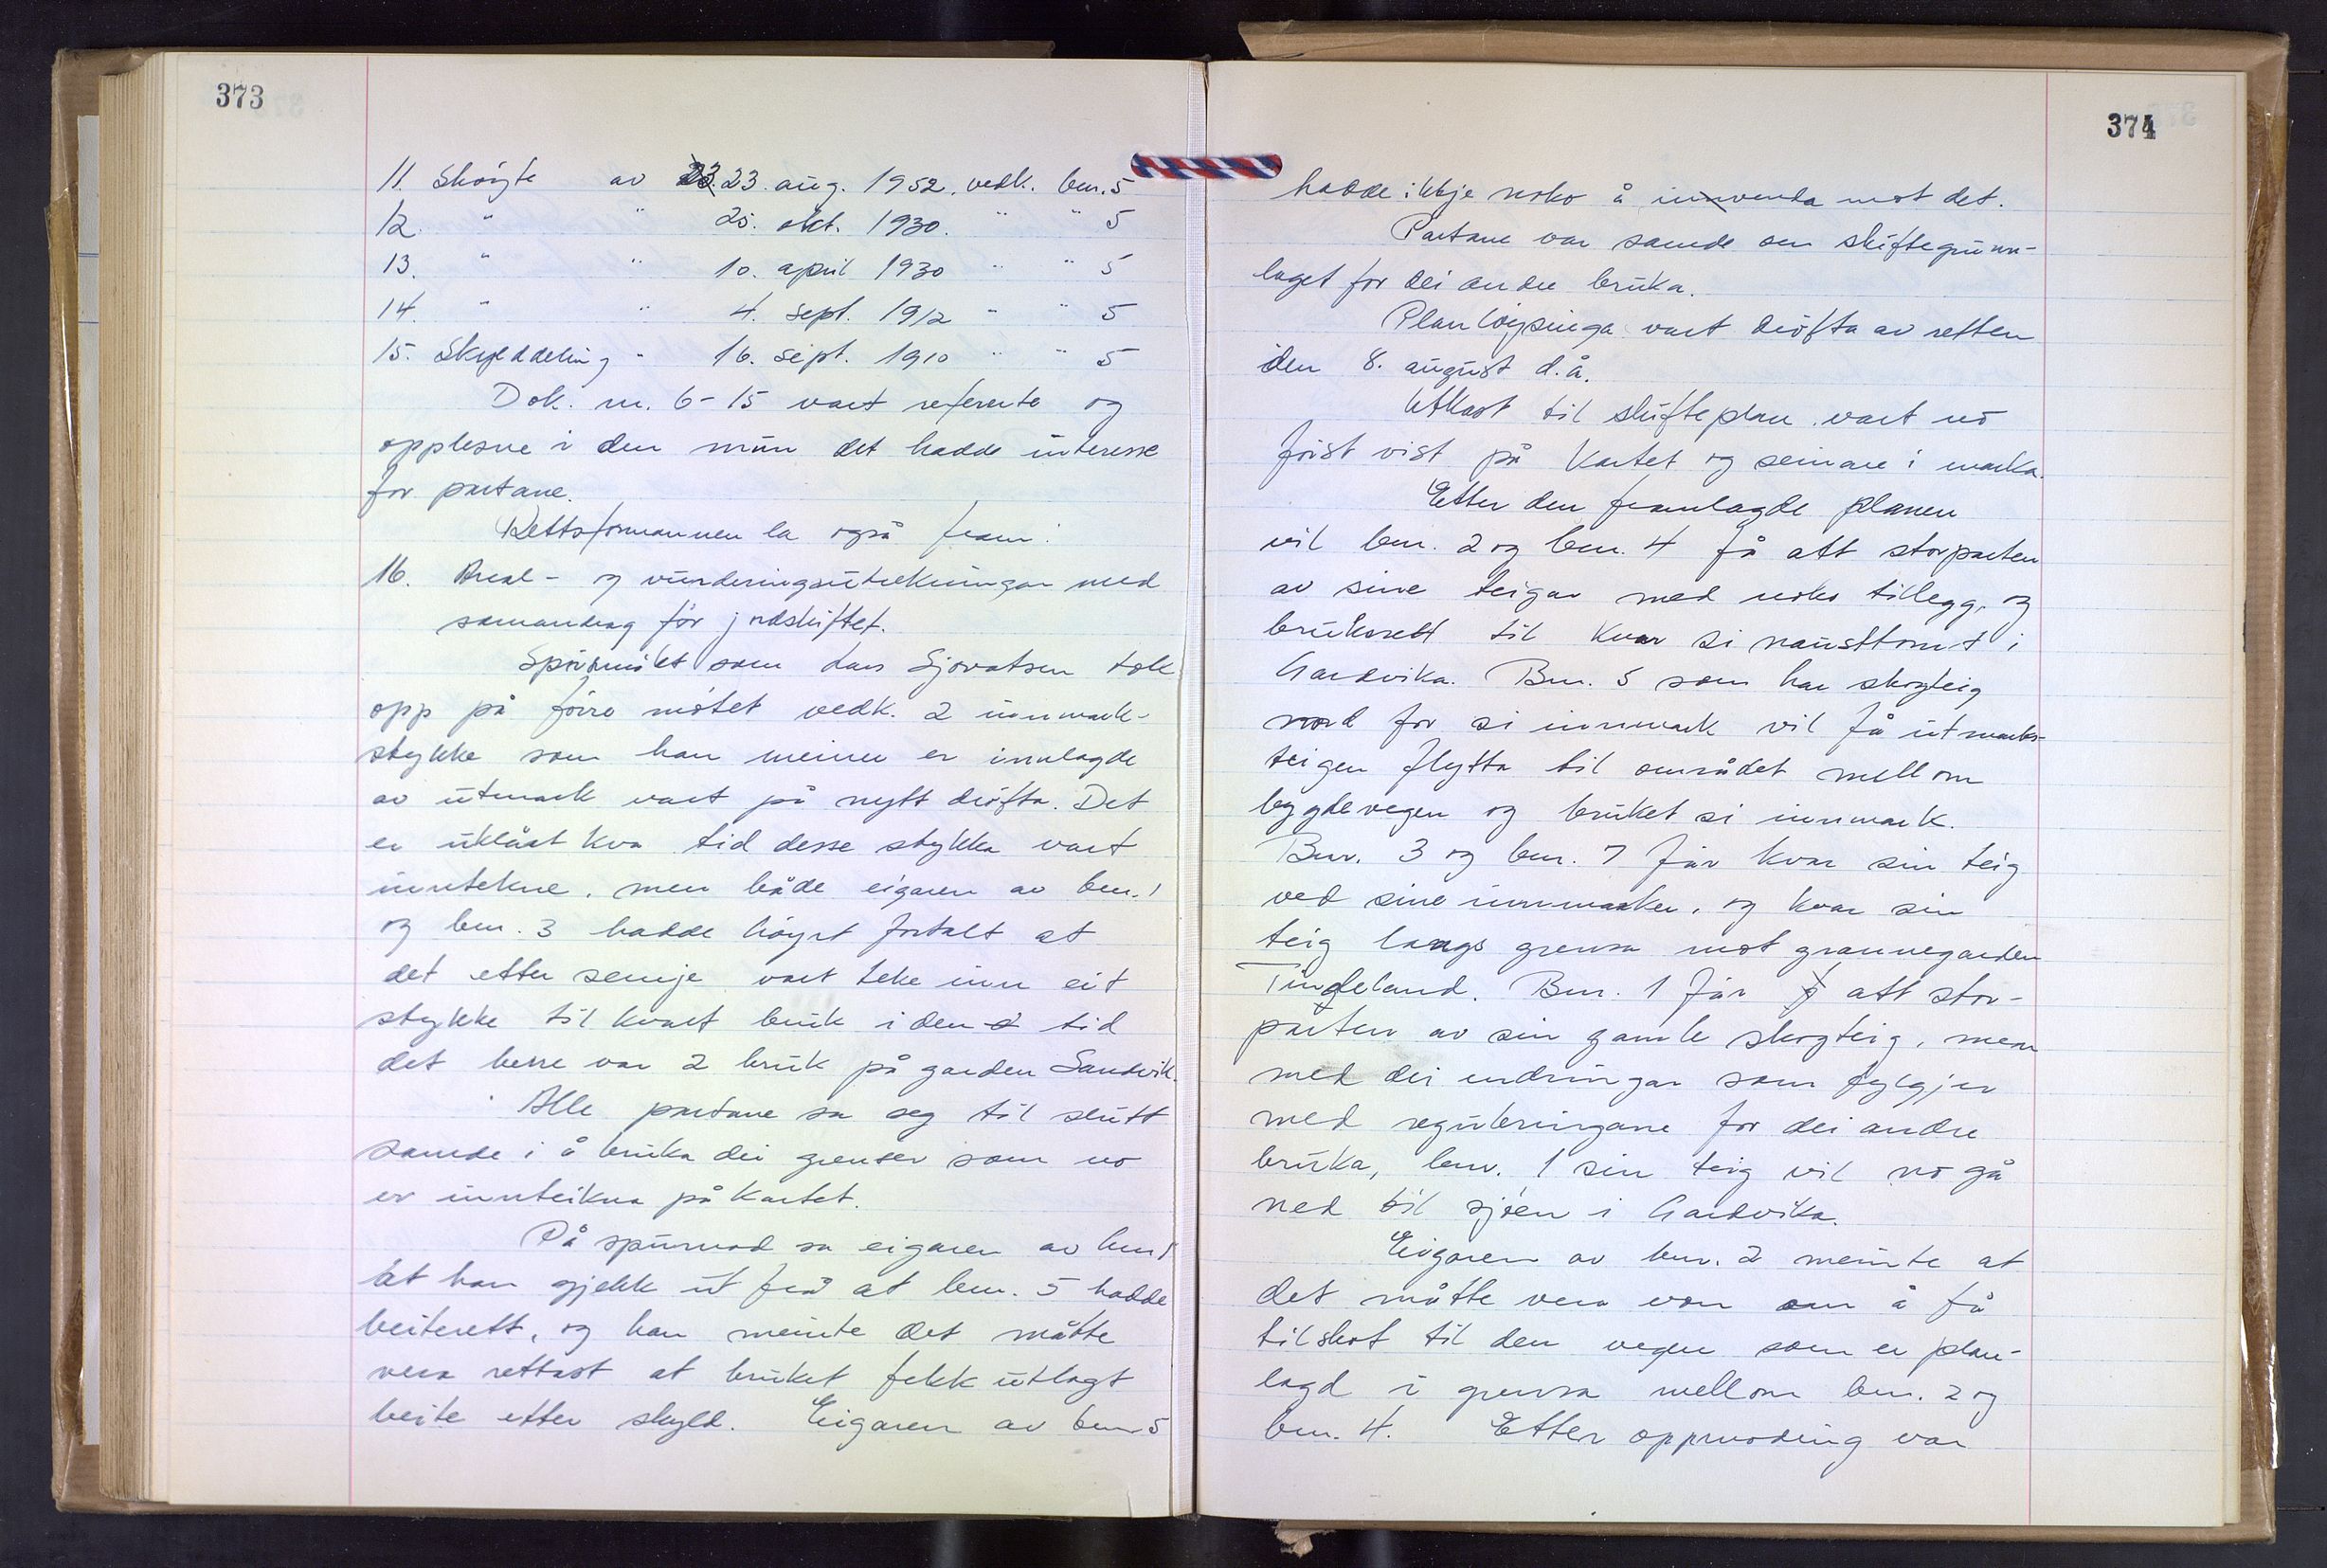 373
11. Skøyte av 23. aug. 1952. vedk. bnr. 5
12. " " 25. okt. 1930. " " 5
13. " " 10. april 1930 " " 5
14. " " 4. sept. 1912 " " 5
15. Skylddeling " 16. sept. 1910 " " 5
Dok. nr. 6-15 vart refererte og
opplesne i den mun det hadde interesse
for partane.
Rettsformannen la også fram:
16. Areal- og vurderingsutrekningar med
samandrag før jordskiftet.
Spørsmålet som Lars Sjovatsen tok
opp på førre møtet vedk. 2 innmark-
stykke som han meiner er innlagde
av utmark vart på nytt drøfta. Det
er uklårt kva tid desse stykka vart
inntekne, men både eigaren av bnr. 1
og bnr. 3 hadde høyrt fortalt at
det etter semje vart teke inn eit
stykke til kvart bruk i den tid
det berre var 2 bruk på garden Sandvik.
Alle partane sa seg til slutt
samde i å bruka dei grenser som no
er innteikna på kartet.
På spurnad sa eigaren av bnr 1
at han gjekk ut frå at bnr. 5 hadde
beiterett, og han meinte det måtte
vera rettast at bruket fekk utlagt
beite etter skyld. Eigaren av bnr 5
374
hadde ikkje noko å innvenda mot det.
Partane var samde om skiftegrunn-
laget for dei andre bruka.
Planløysinga vart drøfta av retten
den 8. august d.å.
Utkast til skifteplan vart no
først vist på kartet og seinare i marka.
Etter den framlagde planen
vil bnr. 2 og bnr. 4 få att storparten
av sine teigar med noko tillegg, og
bruksrett til kvar si nausttomt i
Gardvika. Bnr. 5 som har skogteig
nord for si innmark vil få utmarks-
teigen flytta til området mellom
bygdevegen og bruket si innmark.
Bnr. 3 og bnr. 7 får kvar sin teig
ved sine innmarker, og kvar sin
teig langs grensa mot grannegarden
Tingleland. Bnr. 1 får att stor-
parten av sin gamle skogteig, men
med dei endringar som fylgjer
med reguleringane for dei andre
bruka, bnr. 1 sin teig vil no gå
ned til sjøen i Gardvika.
Eigaren av bnr. 2 meinte at
det måtte vera von om å få
tilskot til den vegen som er plan-
lagd i grensa mellom bnr. 2 og
bnr. 4. Etter oppmoding var